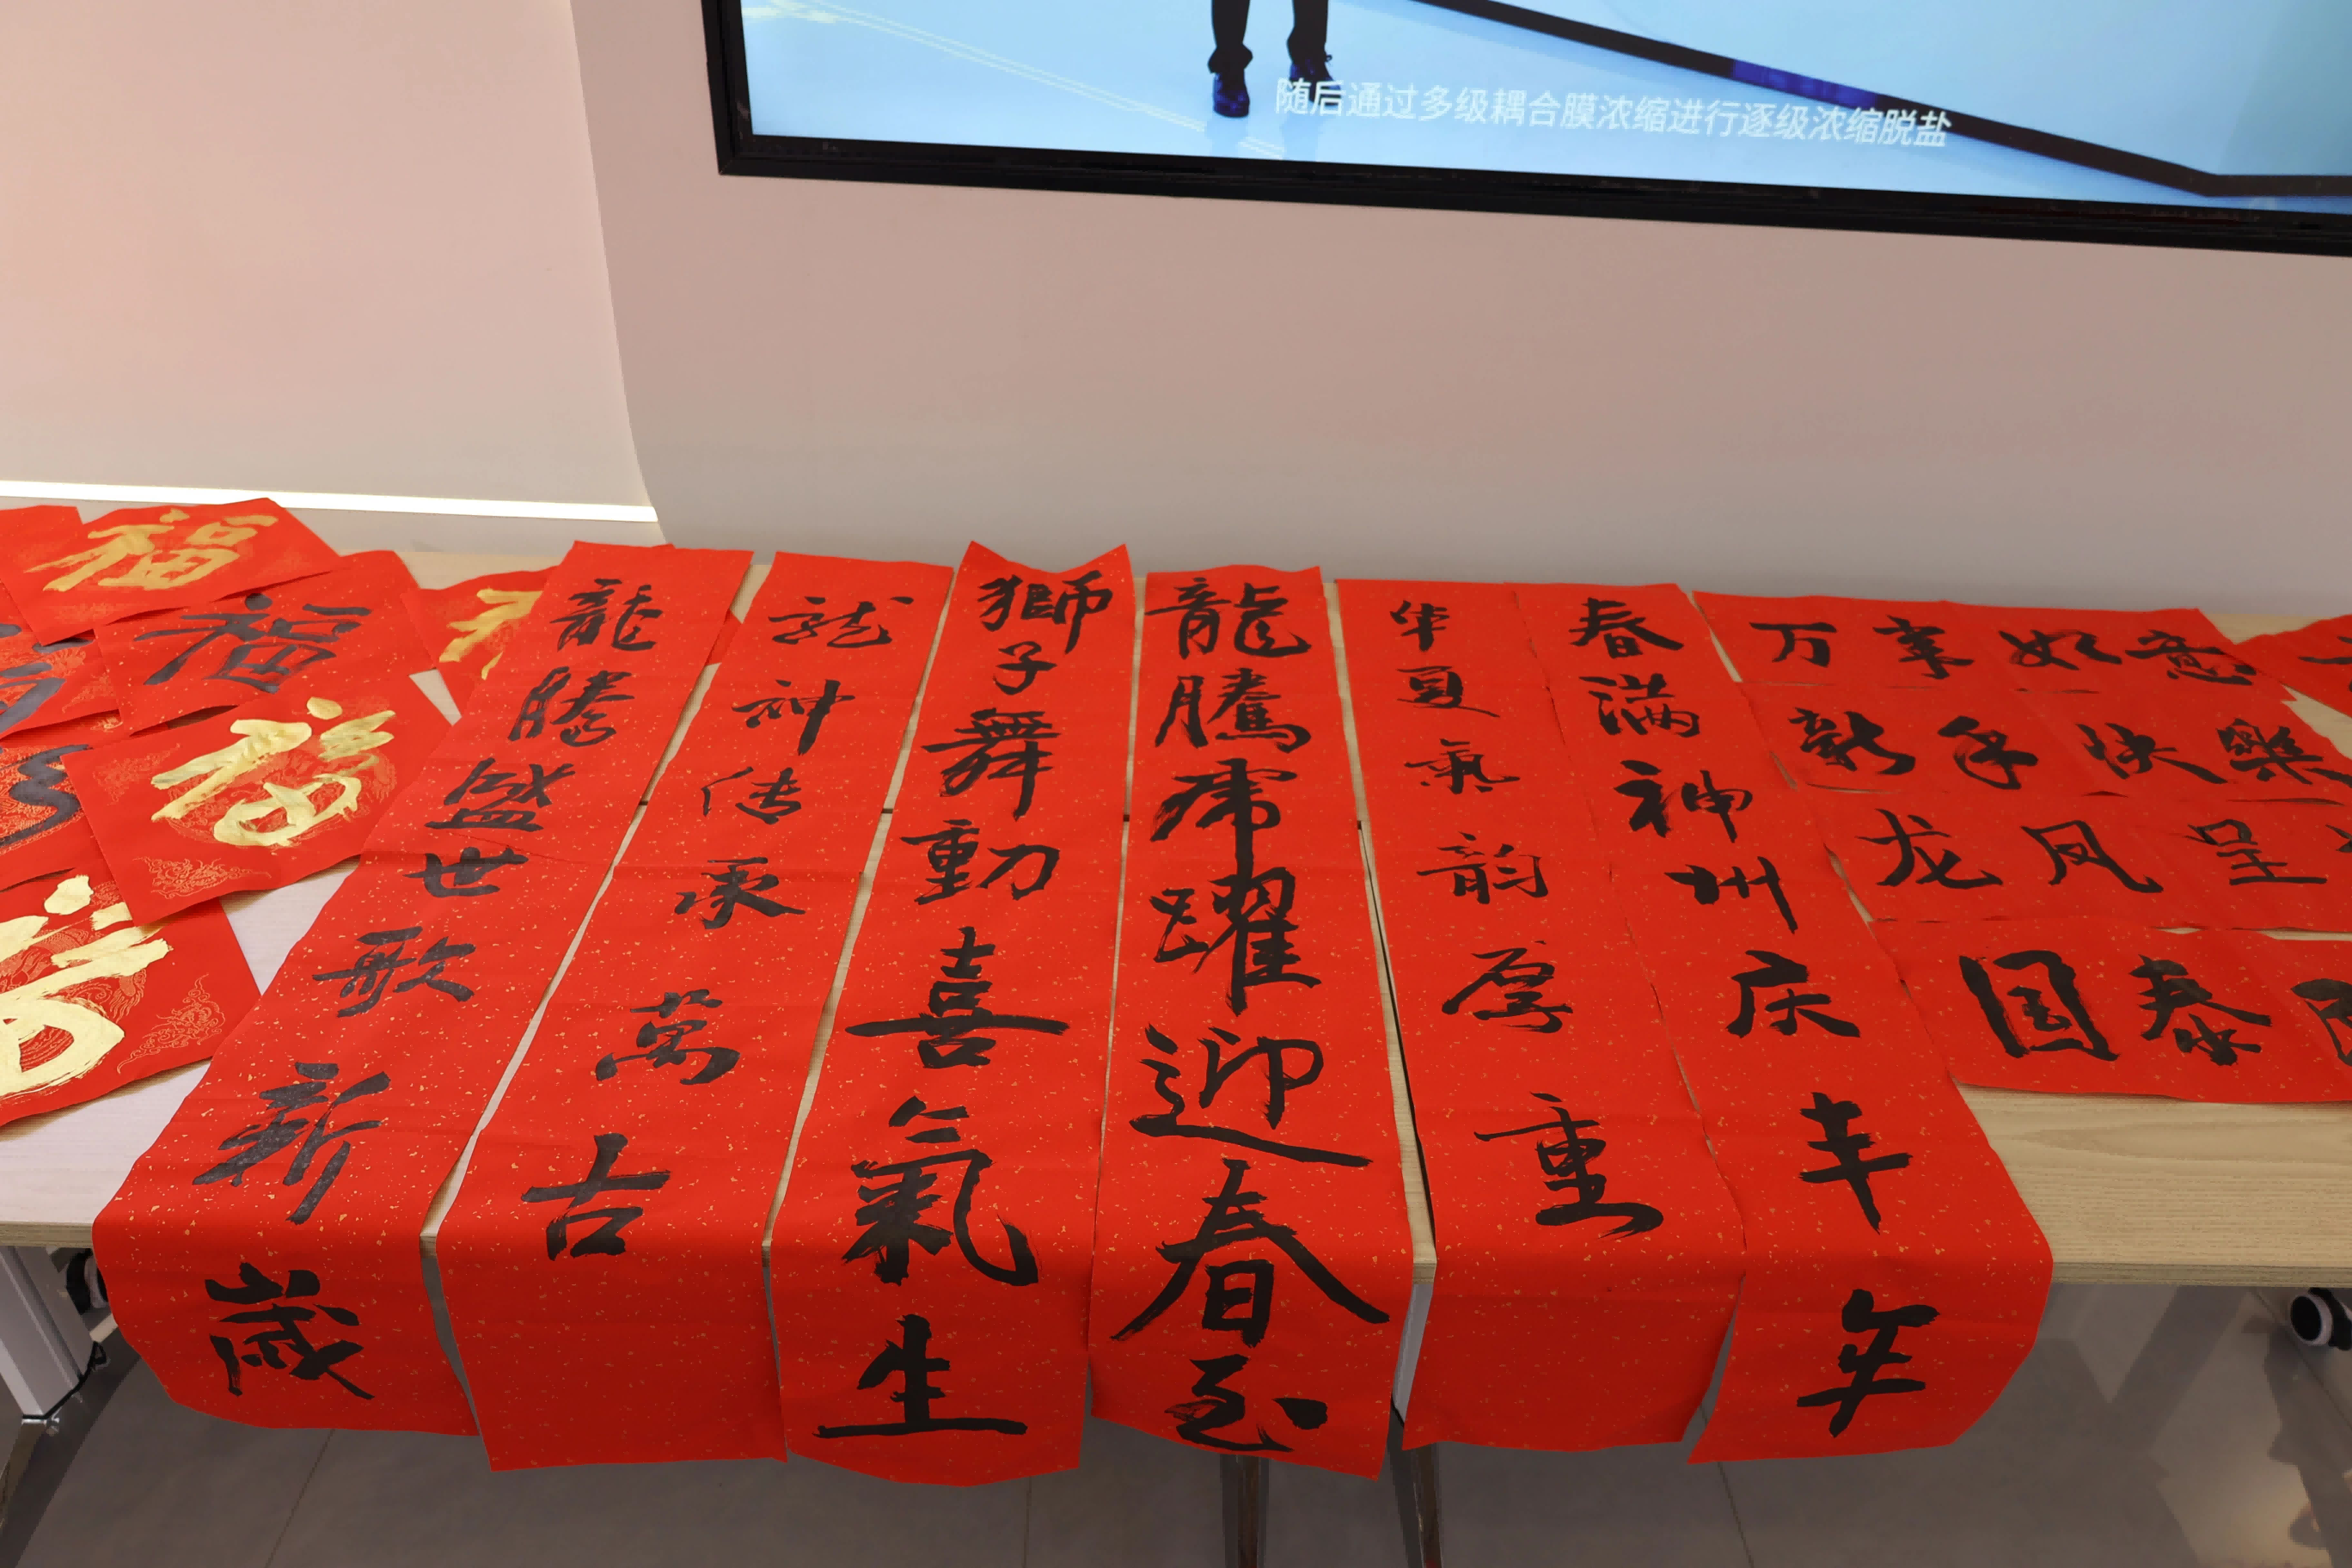 随后通过多级耦合膜浓缩进行逐级浓缩脱盐
福
福
福
龍騰盛世歌新歲
龙神传承萬古
獅子舞動喜氣生
龍騰虎躍迎春至
华夏氣韵厚重
春满神州庆丰年
万事如意
新年快樂
龙凤呈
国泰